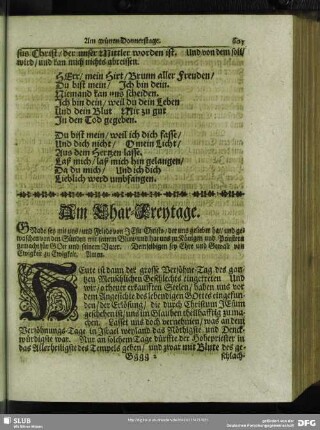 Am Grünen Donnerstage.
sus Christ/ der unser Mittler worden ist. Und von dem soll/
wird/ und kan mich nichts abreissen.
HErr/ mein Hirt/ Brunn aller Freuden/
Du bist mein/ Ich bin dein.
Niemand kan uns scheiden.
Ich bin dein/ weil du dein Leben
Und dein Blut Mir zu gut
In den Tod gegeben.
Du bist mein/ weil ich dich fasse/
Und dich nicht/ O mein Licht/
Aus dem Hertzen lasse.
Laß mich/ laß mich hin gelangen/
Da du mich/ Und ich dich
Lieblich werd umbfangen.
Am Char-Freytage.
GNade sey mit uns/ und Friede von JEsu Christo/ der uns geliebet hat/ und ge-
waschen von den Sünden mit seinem Blut/ und hat uns zu Königen und Priestern
gemacht für GOtt und seinem Vater. Demselbigen sey Ehre und Gewalt von
Ewigkeit zu Ewigkeit. Amen.
HEute ist dann der grosse Versöhne-Tag des gan-
tzen Menschlichen Geschlechts eingetreten. Und
wir/ als theuer erkaufften Seelen/ haben uns vor
dem Angesichte des lebendigen GOttes eingefun-
den/ der Erlösung/ die durch Christum JEsum
geschehen ist/ uns im Glauben theilhafftig zu ma-
chen. Lasset uns doch vernehmen/ was an dem
Versöhnungs-Tage in Israel weyland das Nöthigste und Denck-
würdigste war. Nur an solchem Tage dürffte der Hohepriester in
das Allerheiligste des Tempels gehen/ und zwar mit Blute des ge-
Gggg 2
schlach-
SLUB
DFG